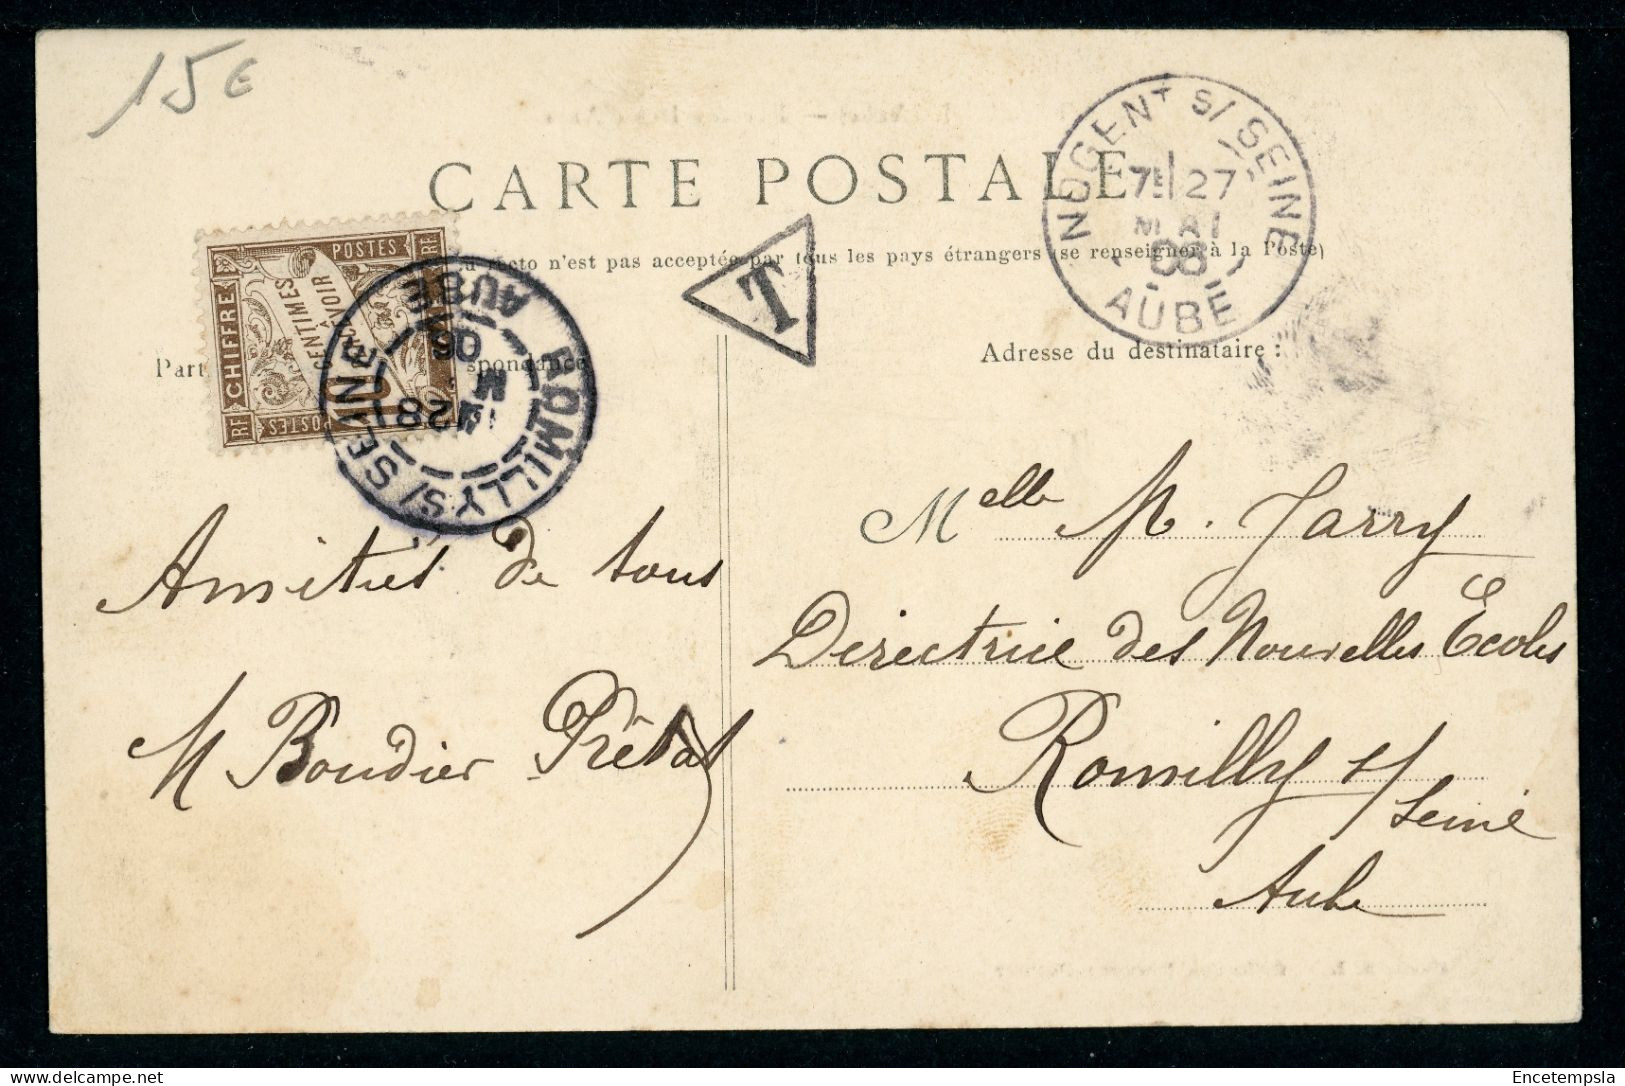 15€
CARTE POSTALE
recto n'est pas acceptée par tous les pays étrangers (se renseigner à la Poste)
NOGENT S/ SEINE
7E 27
MAI
06
AUBE
T
RF POSTES RF
CHIFFRE
CENTIMES
À
PERCEVOIR
10
RF POSTES
ROMILLY S/ SEINE
28
M
06
AUBE
Part
spondance
Adresse du destinataire :
Amitiés de tous
M Boudier Prétat
Melle M. Jarry
Directrice des Nouvelles Ecoles
Romilly s/
Seine
Aube
delcampe.net
Encetempsla